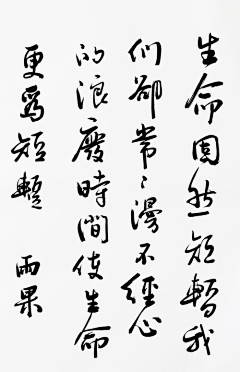 生命固然短暂我
们卻常常漫不經心
的浪廢時間使生命
更爲短暫 雨果